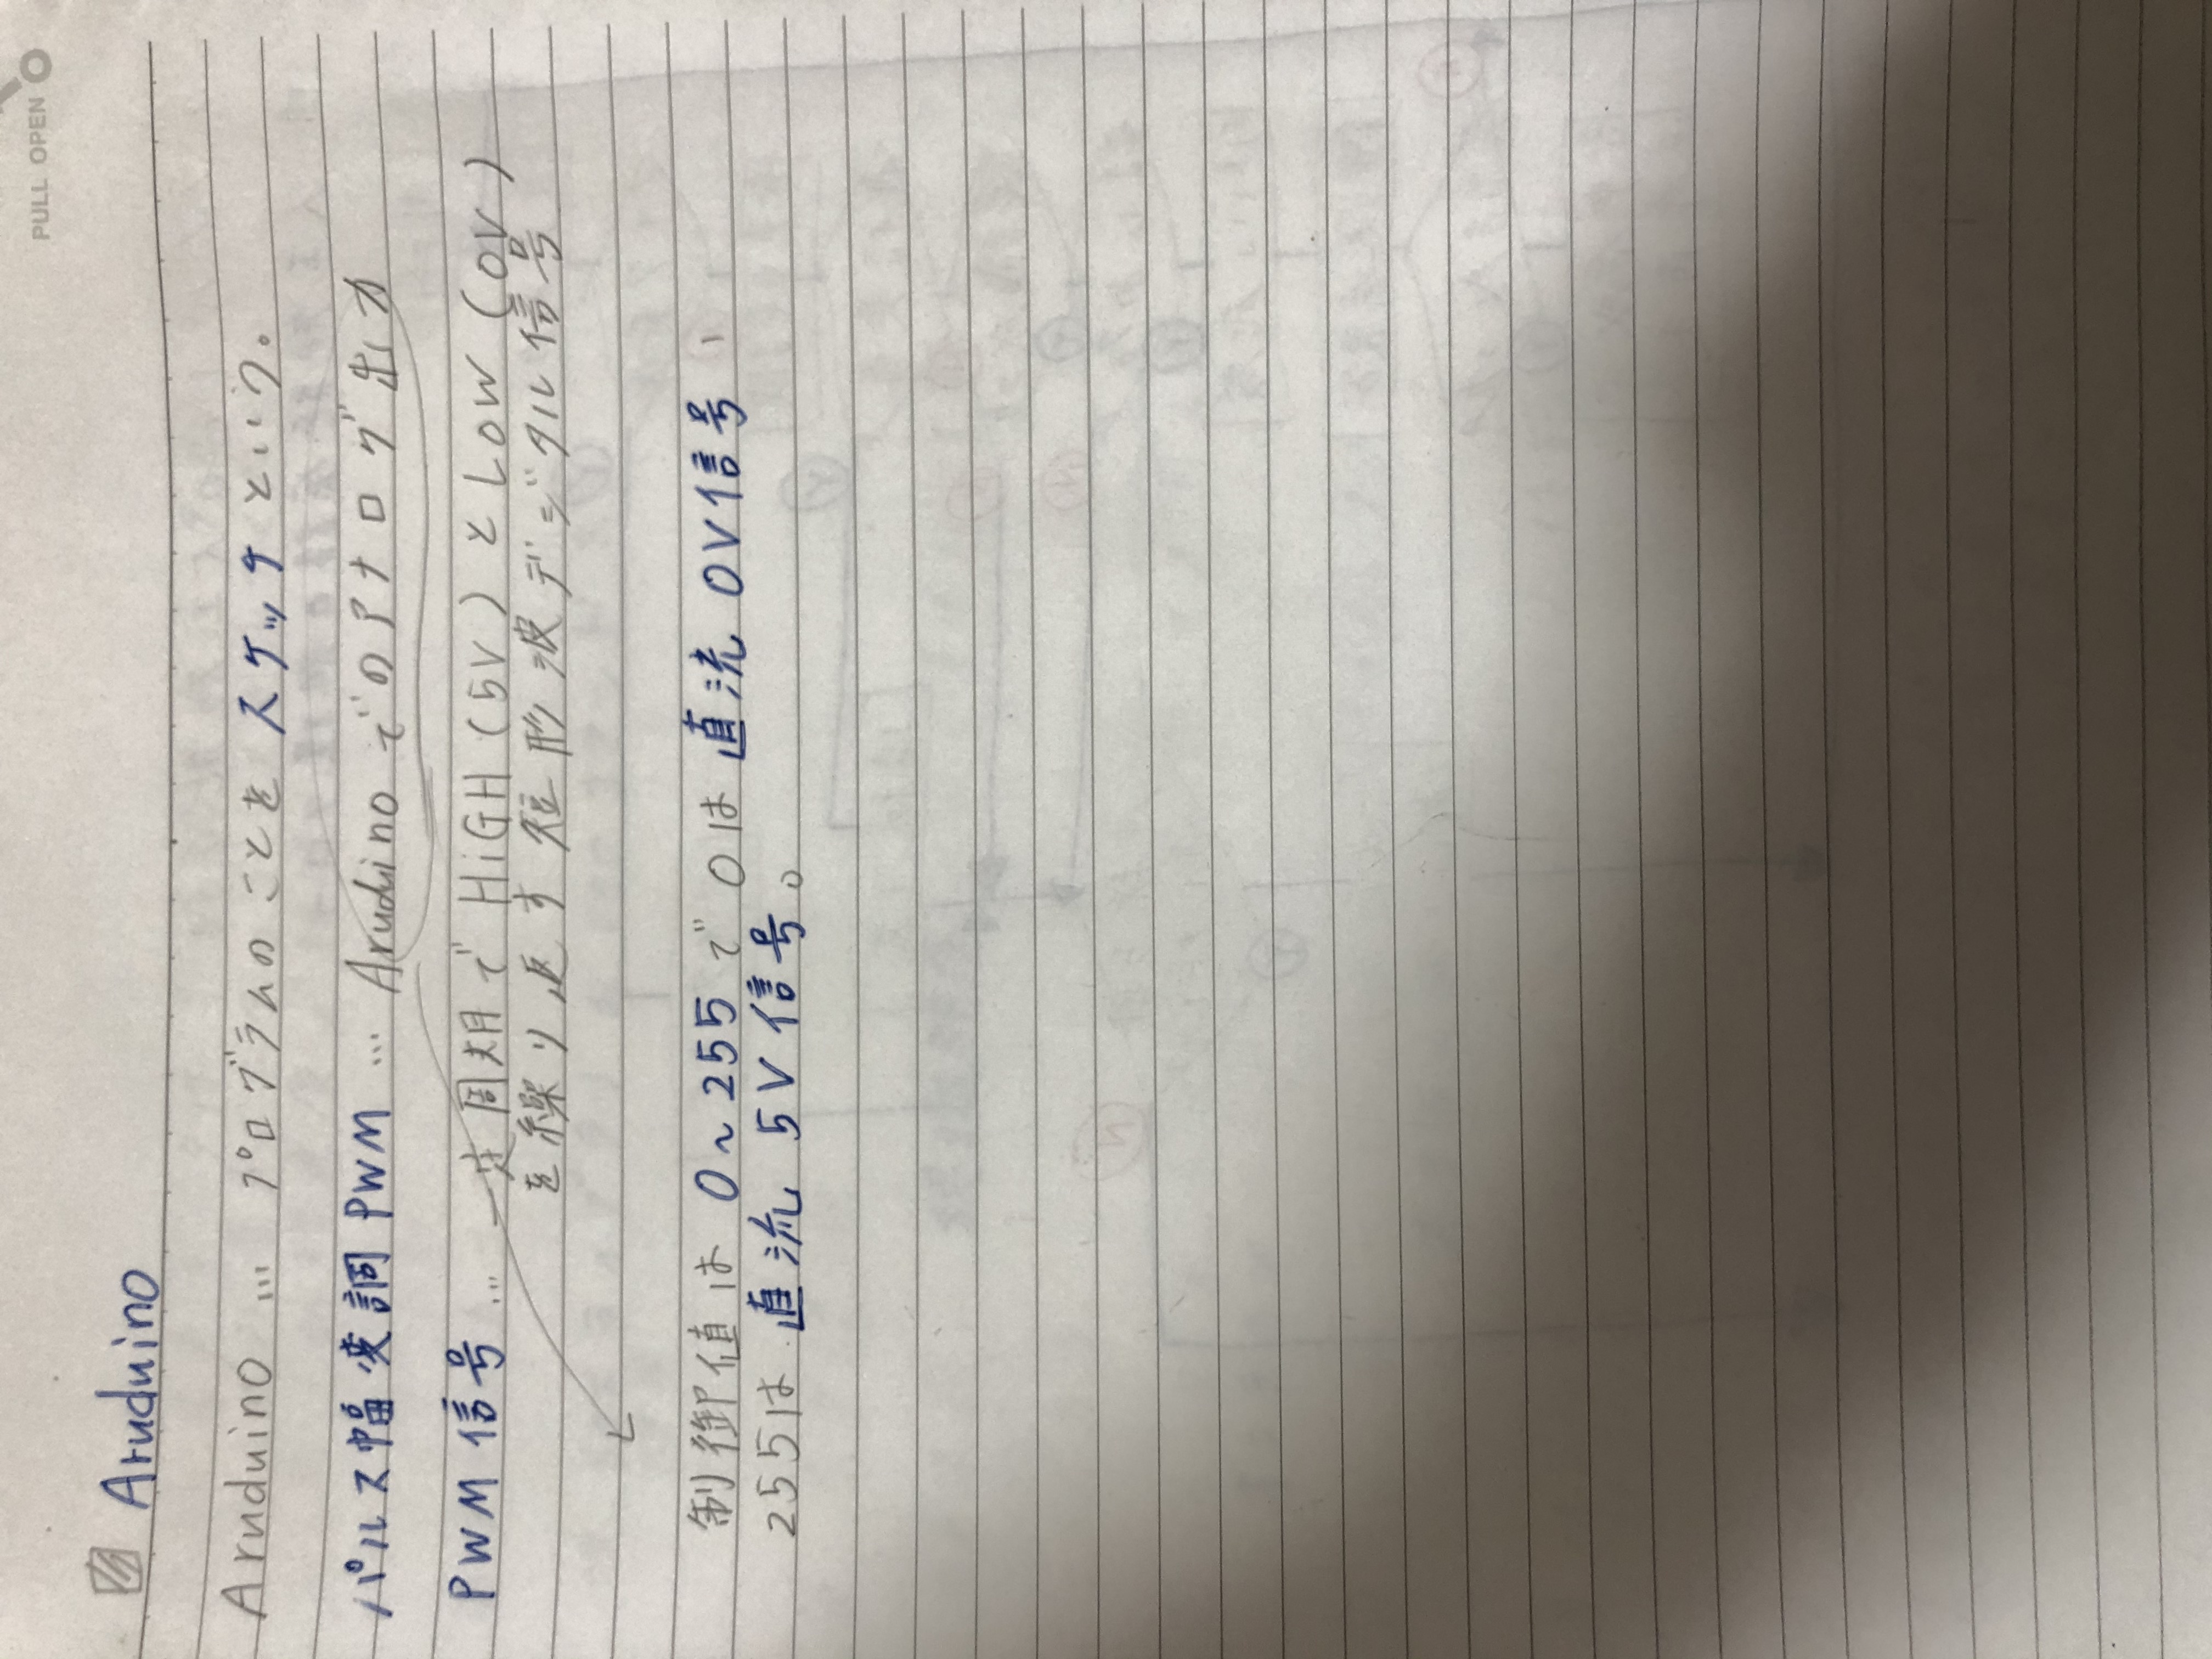 PULL OPEN
Aruduino
Aruduino … プログラムのことを スケッチ という。
パルス幅変調 PWM … Aruduino でのアナログ出力
PWM 信号 … 一定周期で HiGH (5V) と LOW (0V)
を繰り返す 短形波デジタル信号
制御値は 0~255 で 0は 直流 0V信号、
255は 直流 5V 信号。